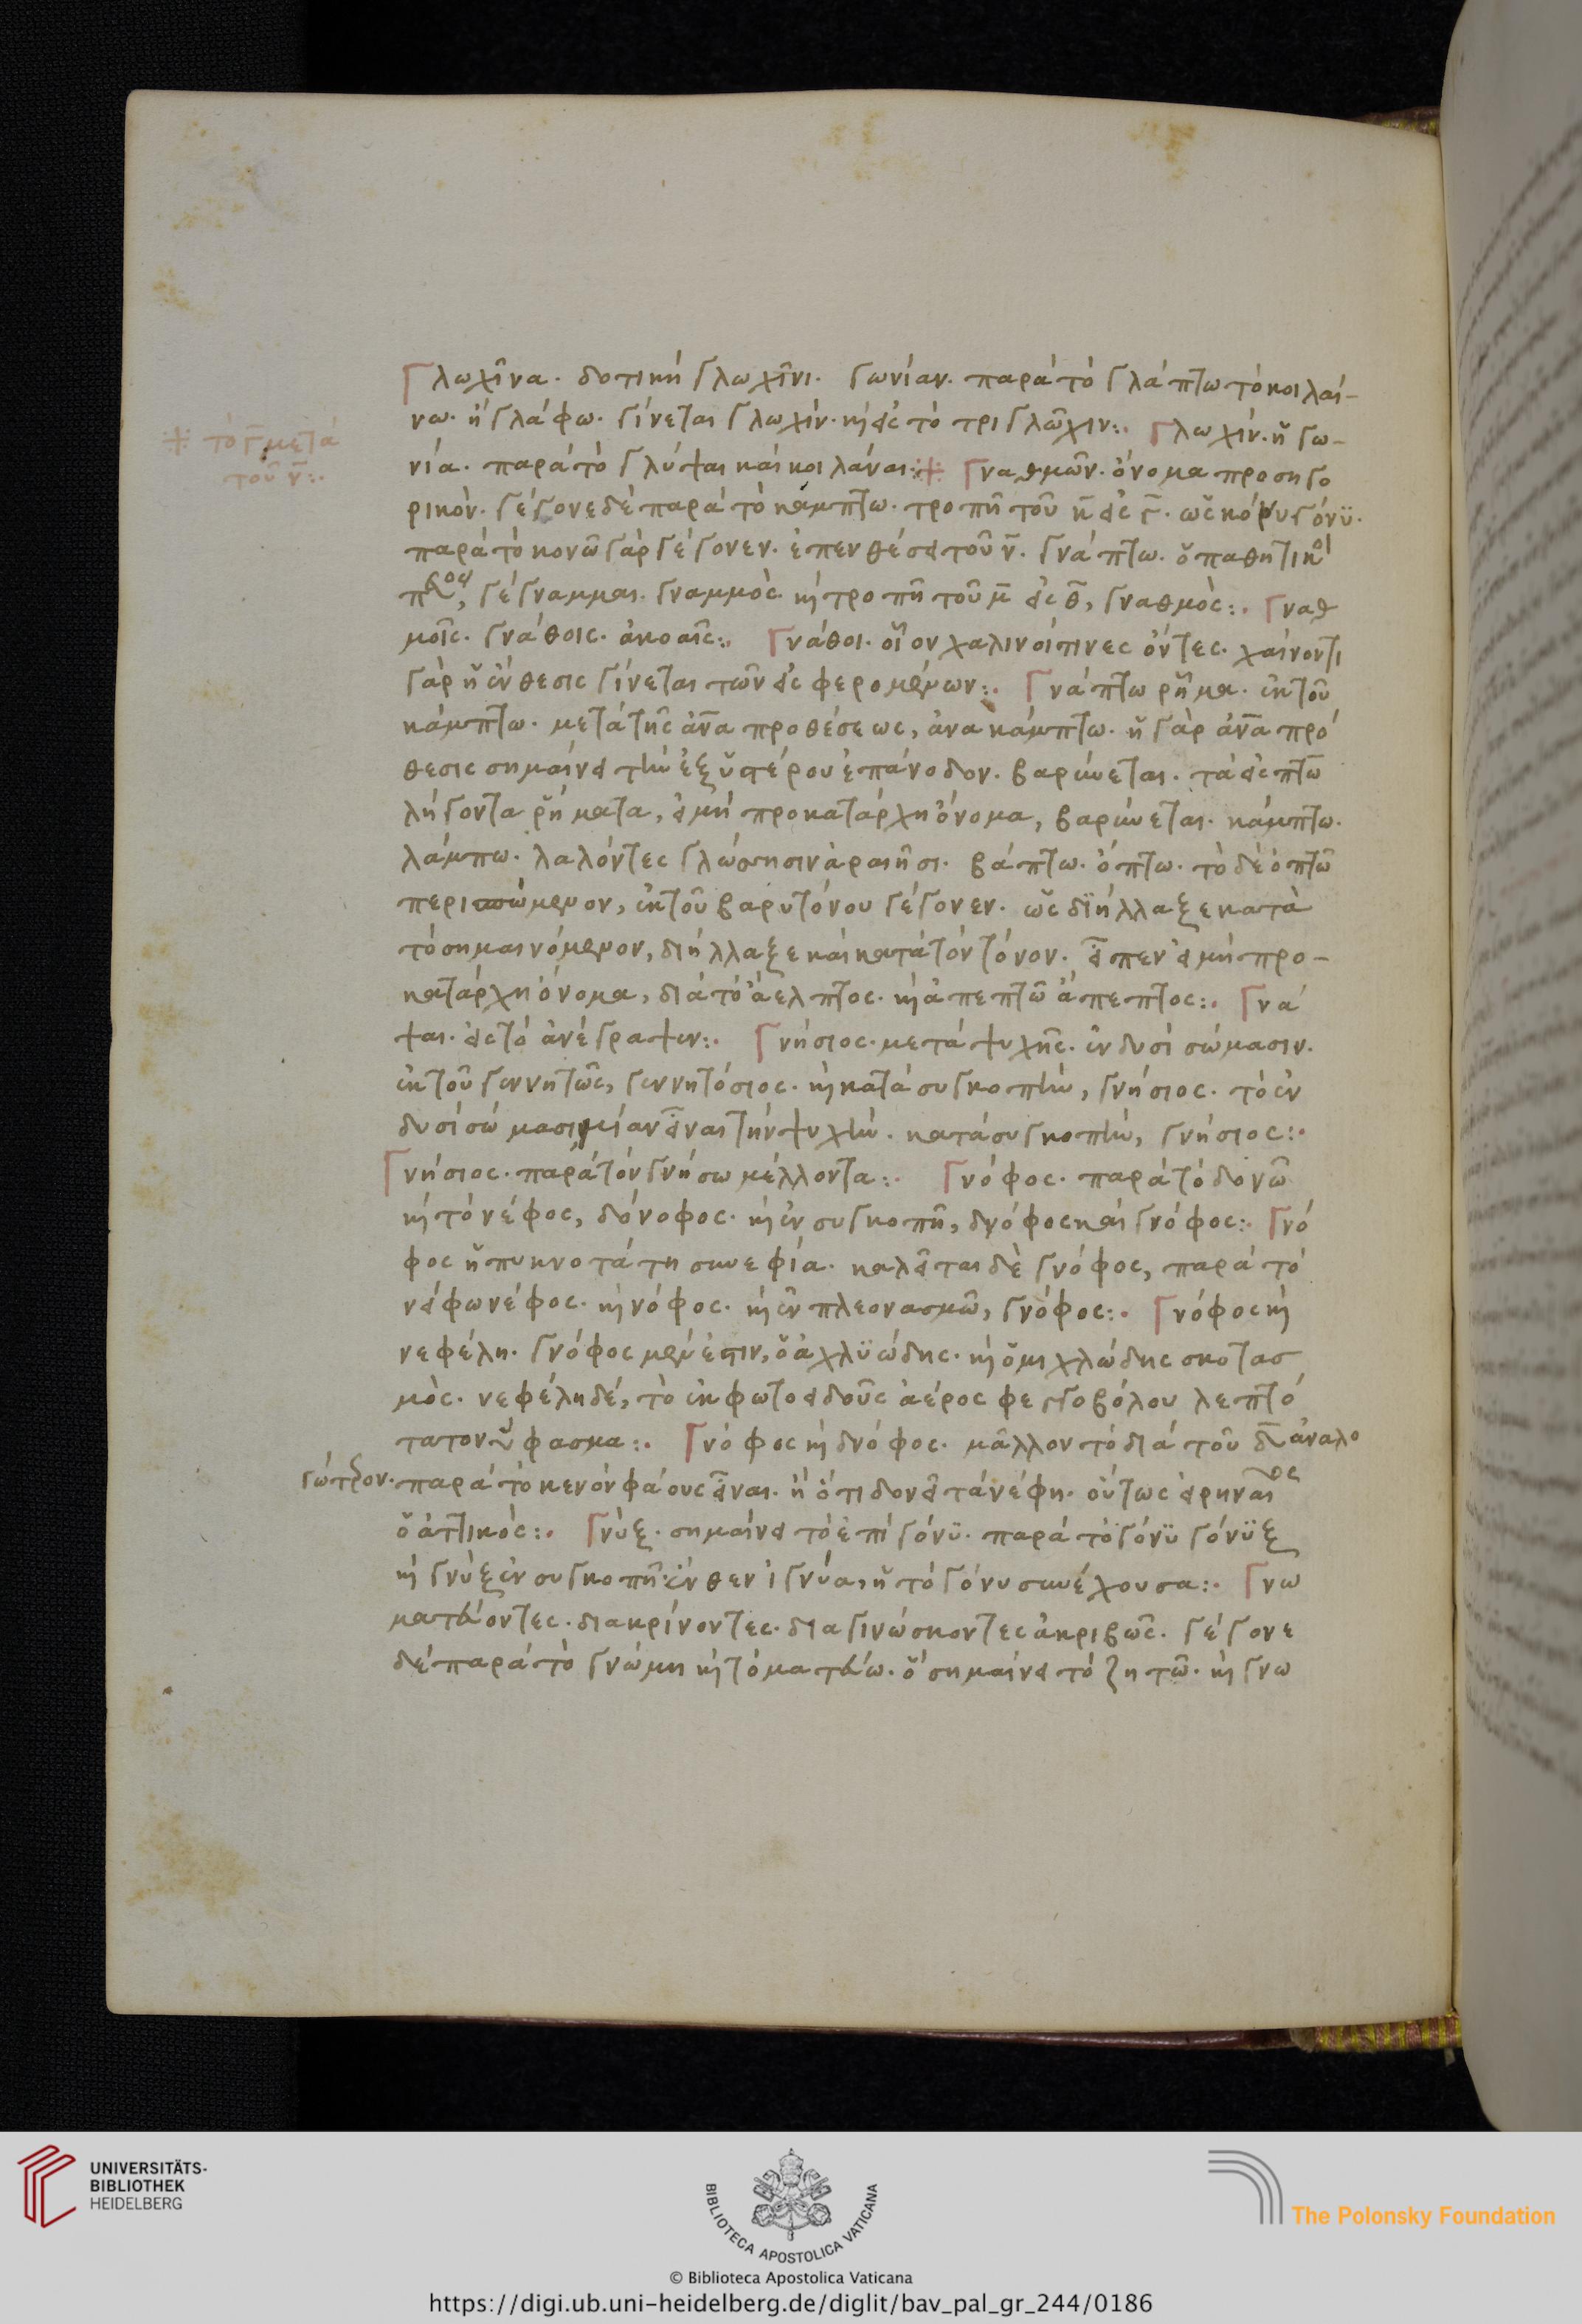 Γλωχῖνα· δοτικὴ γλωχῖνι· γωνίαν· παρὰ τὸ γλάπτω τὸ κοιλαί-
νω· ἢ γλάφω· γίνεται γλωχίν· καὶ εἰς τὸ τριγλῶχιν:· Γλωχίν· ἡ γω-
νία· παρὰ τὸ γλύψαι καὶ κοιλάναι:· Γναθμῶν· ὄνομα προσηγο
ρικὸν· γέγονε δὲ παρὰ τὸ κάμπτω· τροπῆ τοῦ κ εἰς γ· ὡς κόνυ γόνϋ·
παρὰ τὸ κονῶ γὰρ γέγονεν· ἐπενθέσει τοῦ ν· γνάπτω· ὁ παθητικὸ
γέγναμμαι· γναμμὸς καὶ τροπῆ τοῦ μ εἰς θ, γναθμὸς:· Γναθ
μοῖς· γνάθοις· ἀκοαῖς:· Γνάθοι· οἷον χαλινοί τινες ὄντες· χαίνοντι
γὰρ ἡ ἔνθεσις γίνεται τῶν εἰσφερομένων:· Γνάπτω ρῆμα· ἐκ τοῦ
κάμπτω· μετὰ τῆς ἀνα προθέσεως, ἀνακάμπτω· ἡ γὰρ ἀνα πρό
θεσις σημαίνει τὴν ἐξ ὑστέρου ἐπάνοδον· βαρύνεται· τὰ εἰς πτω
λήγοντα ρήματα, εἰ μὴ προκατάρχη ὄνομα, βαρύνεται· κάμπτω·
λάμπω· λαλόντες γλώσσησιν ἀραιῆσι· βάπτω· ὄπτω· τὸ δὲ ὀπτῶ
περισπώμενον, ἐκ τοῦ βαρυτόνου γέγονεν· ὡς διήλλαξε κατὰ
τὸ σημαινόμενον, διήλλαξε καὶ κατὰ τὸν τόνον· εἶπεν εἰ μὴ προ-
κατάρχη ὄνομα, διὰ τὸ ἄελπτος· καὶ ἀπεπτῶ ἄπεπτος:· Γνά
ψαι· εἰς τὸ ἀνέγραψεν:· Γνήσιος· μετὰ ψυχῆς· ἐν δυσὶ σώμασιν·
ἐκ τοῦ γεννητῶς, γεννητόσιος· καὶ κατὰ συγκοπὴν, γνήσιος· τὸ ἐν
δυσὶ σώμασι μίαν εἶναι τὴν ψυχὴν· κατὰ συγκοπὴν, γνήσιος:·
Γνήσιος· παρὰ τὸν γνήσω μέλλοντα:· Γνόφος· παρὰ τὸ δονῶ
καὶ τὸ νέφος, δόνοφος· καὶ ἐν συγκοπῆ, δνόφος καὶ γνόφος:· Γνό
φος ἡ πυκνοτάτη συνεφία· καλεῖται δὲ γνόφος, παρὰ τὸ
νείφω νέφος· καὶ νόφος· καὶ ἐν πλεονασμῶ, γνόφος:· Γνόφος καὶ
νεφέλη· γνόφος μέν ἐστιν, ὁ ἀχλϋώδης· καὶ ὁμιχλώδης σκοτασ
μὸς· νεφέλη δέ, τὸ ἐκ φωτοειδοῦς ἀέρος φεγγοβόλου λεπτό
τατον ὕφασμα:· Γνόφος καὶ δνόφος· μᾶλλον τὸ διὰ τοῦ δ ἀναλο
γώτερον· παρὰ τὸ κενὸν φάους εἶναι· ἢ ὅτι δονεῖ τὰ νέφη· οὕτως εἰρηναῖος
ὁ ἀττικὸς:· Γνὺξ· σημαίνει τὸ ἐπὶ γόνϋ· παρὰ τὸ γόνϋ γόνϋξ
καὶ γνὺξ ἐν συγκοπῆ· ἔνθεν ἰγνύα, ἡ τὸ γόνυ συνέχουσα:· Γνω
ματεύοντες· διακρίνοντες· διαγινώσκοντες ἀκριβῶς· γέγονε
δὲ παρὰ τὸ γνώμη καὶ τὸ ματεύω· ὃ σημαίνει τὸ ζητῶ· καὶ γνω
τὸ γ μετὰ
τοῦ ν:·
UNIVERSITÄTS-
BIBLIOTHEK
HEIDELBERG
BIBLIOTECA APOSTOLICA VATICANA
The Polonsky Foundation
© Biblioteca Apostolica Vaticana
https://digi.ub.uni-heidelberg.de/diglit/bav_pal_gr_244/0186